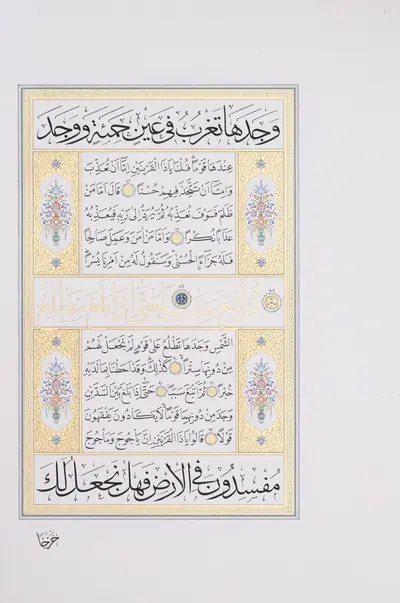 وَجَدَهَا تَغْرُبُ فِى عَيْنٍ حَمِئَةٍ وَوَجَدَ
عِنْدَهَا قَوْمًا قُلْنَا يَاذَا الْقَرْنَيْنِ اِمَّا اَنْ تُعَذِّبَ
وَاِمَّا اَنْ تَتَّخِذَ فِيهِمْ حُسْنًا قَالَ اَمَّا مَنْ
ظَلَمَ فَسَوْفَ نُعَذِّبُهُ ثُمَّ يُرَدُّ اِلٰى رَبِّهِ فَيُعَذِّبُهُ
عَذَابًا نُكْرًا وَاَمَّا مَنْ اٰمَنَ وَعَمِلَ صَالِحًا
فَلَهُ جَزَاءً الْحُسْنٰى وَسَنَقُولُ لَهُ مِنْ اَمْرِنَا يُسْرًا
ثُمَّ اَتْبَعَ سَبَبًا حَتّٰى اِذَا بَلَغَ مَطْلِعَ
الشَّمْسِ وَجَدَهَا تَطْلُعُ عَلٰى قَوْمٍ لَمْ نَجْعَلْ لَهُمْ
مِنْ دُونِهَا سِتْرًا كَذٰلِكَ وَقَدْ اَحَطْنَا بِمَا لَدَيْهِ
خُبْرًا ثُمَّ اَتْبَعَ سَبَبًا حَتّٰى اِذَا بَلَغَ بَيْنَ السَّدَّيْنِ
وَجَدَ مِنْ دُونِهِمَا قَوْمًا لَا يَكَادُونَ يَفْقَهُونَ
قَوْلًا قَالُوا يَاذَا الْقَرْنَيْنِ اِنَّ يَاْجُوجَ وَمَاْجُوجَ
مُفْسِدُونَ فِى الْاَرْضِ فَهَلْ نَجْعَلُ لَكَ
خَرْجًا